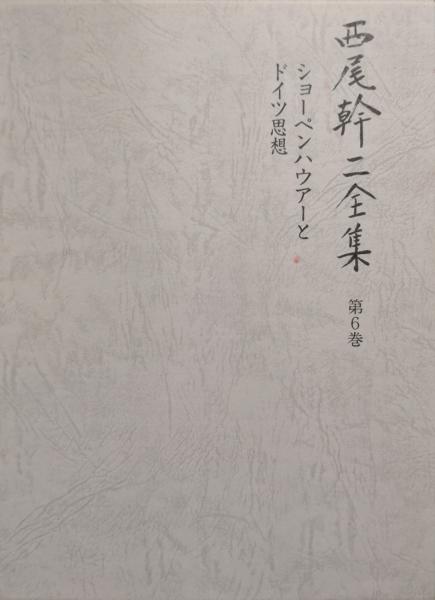 西尾幹二全集
第6巻
ショーペンハウアーと
ドイツ思想